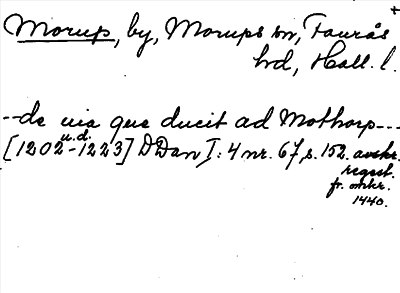 +
Morup, by, Morups sn, Faurås
hd, Hall. l.
--de uia que ducit ad Mothorp---
u.d.
[1202-1223] DDan I: 4 nr. 67, s. 152. avskr.
regest.
fr. omkr.
1440.